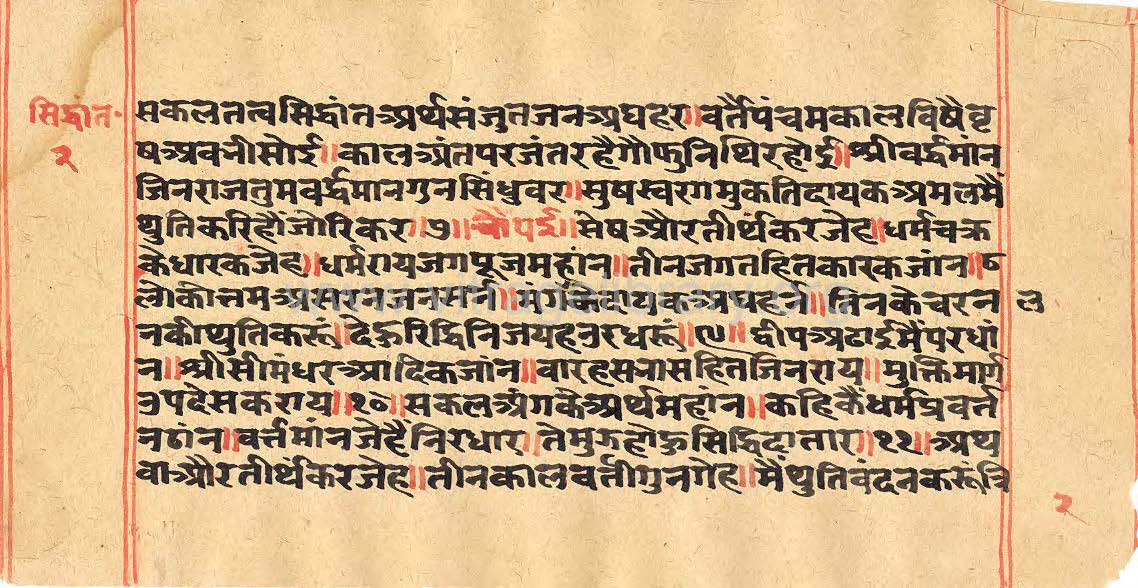 सिद्धांत॰
२
सकलतत्वसिद्धांतअर्थसंजुतजनअघहर॥वर्तैपंचमकालविषैवृ
षअवनीसोई॥कालअंतपरजंतरहैगौफुनिथिरहोई॥श्रीवर्द्धमान
जिनराजतुमवर्द्धमानगुनसिंधुवर॥सुषस्वरगमुकतिदायकअमलमैं
थुतिकरिहौंजोरिकर॥७॥चौपई॥सेषऔरतीर्थकरजेह॥धर्मचक्र
केधारकजेह॥धर्मरायजगपूजमहांन॥तीनजगतहितकारकजांन॥८
लोकोत्तमअसरनजनसर्न॥मंगलदायकअघहर्न॥तिनकेचरन ३
नकीथुतिकरूं॥देहुरिद्धिनिजयहउरधरूं॥९॥द्वीपअढाईमैंपरधां
न॥श्रीसीमंधरआदिकजांन॥वारहसभासहितजिनराय॥मुक्तिमार्ग
उपदेसकराय॥१०॥सकलअंगकेअर्थमहांन॥कहिकैंधर्मप्रवर्त्त
नठांन॥वर्त्तमांनजेहैंनिरधार॥तेमुझहोहुसिद्धिदातार॥११॥अथ
वाऔरतीर्थंकरजेह॥तीनकालवर्तीगुनगेह॥मैंथुतिवंदनकरूंत्रि
२
www.vitragelibrary.org